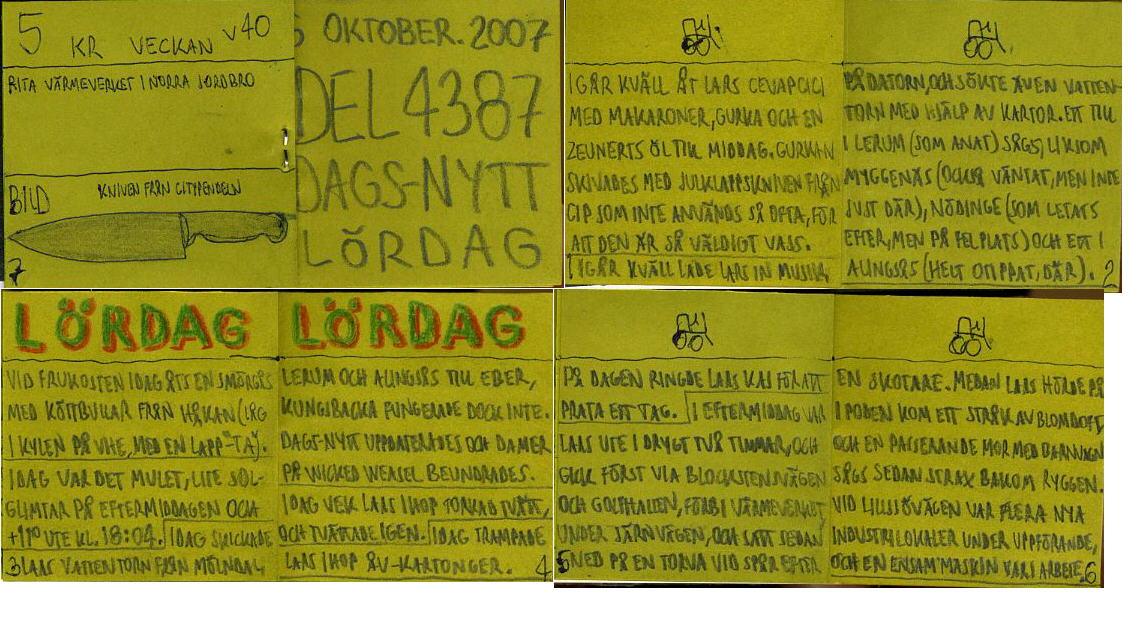 5 KR VECKAN V40
RITA VÄRMEVERKET I NORRA JORDBRO
BILD KNIVEN FRÅN CITYPENDELN
7
OKTOBER. 2007
DEL 4387
DAGS-NYTT
LÖRDAG
IGÅR KVÄLL ÅT LARS CEVAPCICI
MED MAKARONER, GURKA OCH EN
ZEUNERTS ÖL TILL MIDDAG. GURKAN
SKIVADES MED JULKLAPPSKNIVEN FRÅN
CIP SOM INTE ANVÄNDS SÅ OFTA, FÖR
ATT DEN ÄR SÅ VÄLDIGT VASS.
IGÅR KVÄLL LADE LARS IN MUSIK
PÅ DATORN, OCH SÖKTE ÄVEN VATTEN-
TORN MED HJÄLP AV KARTOR. ETT TILL
I LERUM (SOM ANAT) SÅGS, LIKSOM
MYGGENÄS (OCKSÅ VÄNTAT, MEN INTE
JUST DÄR), NÖDINGE (SOM LETATS
EFTER, MEN PÅ FEL PLATS) OCH ETT I
ALINGSÅS (HELT OTIPPAT, DÄR). 2
LÖRDAG
VID FRUKOSTEN IDAG ÅTS EN SMÖRGÅS
MED KÖTTBULLAR FRÅN HÅKAN (LÅG
I KYLEN PÅ VHE, MED EN LAPP "TA").
IDAG VAR DET MULET, LITE SOL-
GLIMTAR PÅ EFTERMIDDAGEN OCH
+11° UTE KL. 18:04. IDAG SKICKADE
3 LARS VATTENTORN FRÅN MÖLNDAL,
LÖRDAG
LERUM OCH ALINGSÅS TILL EBER,
KUNGSBACKA FUNGERADE DOCK INTE.
DAGS-NYTT UPPDATERADES OCH DAMER
PÅ WICKED WEASEL BEUNDRADES.
IDAG VEK LARS IHOP TORKAD TVÄTT,
OCH TVÄTTADE IGEN. IDAG TRAMPADE
LARS IHOP ÅV-KARTONGER. 4
PÅ DAGEN RINGDE LARS KAJ FÖR ATT
PRATA ETT TAG. I EFTERMIDDAG VAR
LARS UTE I DRYGT TVÅ TIMMAR, OCH
GICK FÖRST VIA BLOCKSTENSVÄGEN
OCH GOLFHALLEN, FÖRBI VÄRMEVERKET
UNDER JÄRNVÄGEN, OCH SATT SEDAN
5 NED PÅ EN TORVA VID SPÅR EFTER
EN SKOTARE. MEDAN LARS HÖRDE PÅ
IPODEN KOM ETT STRÅK AV BLOMDOFT
OCH EN PASSERANDE MOR MED BARNVAGN
SÅGS SEDAN STRAX BAKOM RYGGEN.
VID LILLSJÖVÄGEN VAR FLERA NYA
INDUSTRILOKALER UNDER UPPFÖRANDE,
OCH EN ENSAM MASKIN VAR I ARBETE. 6